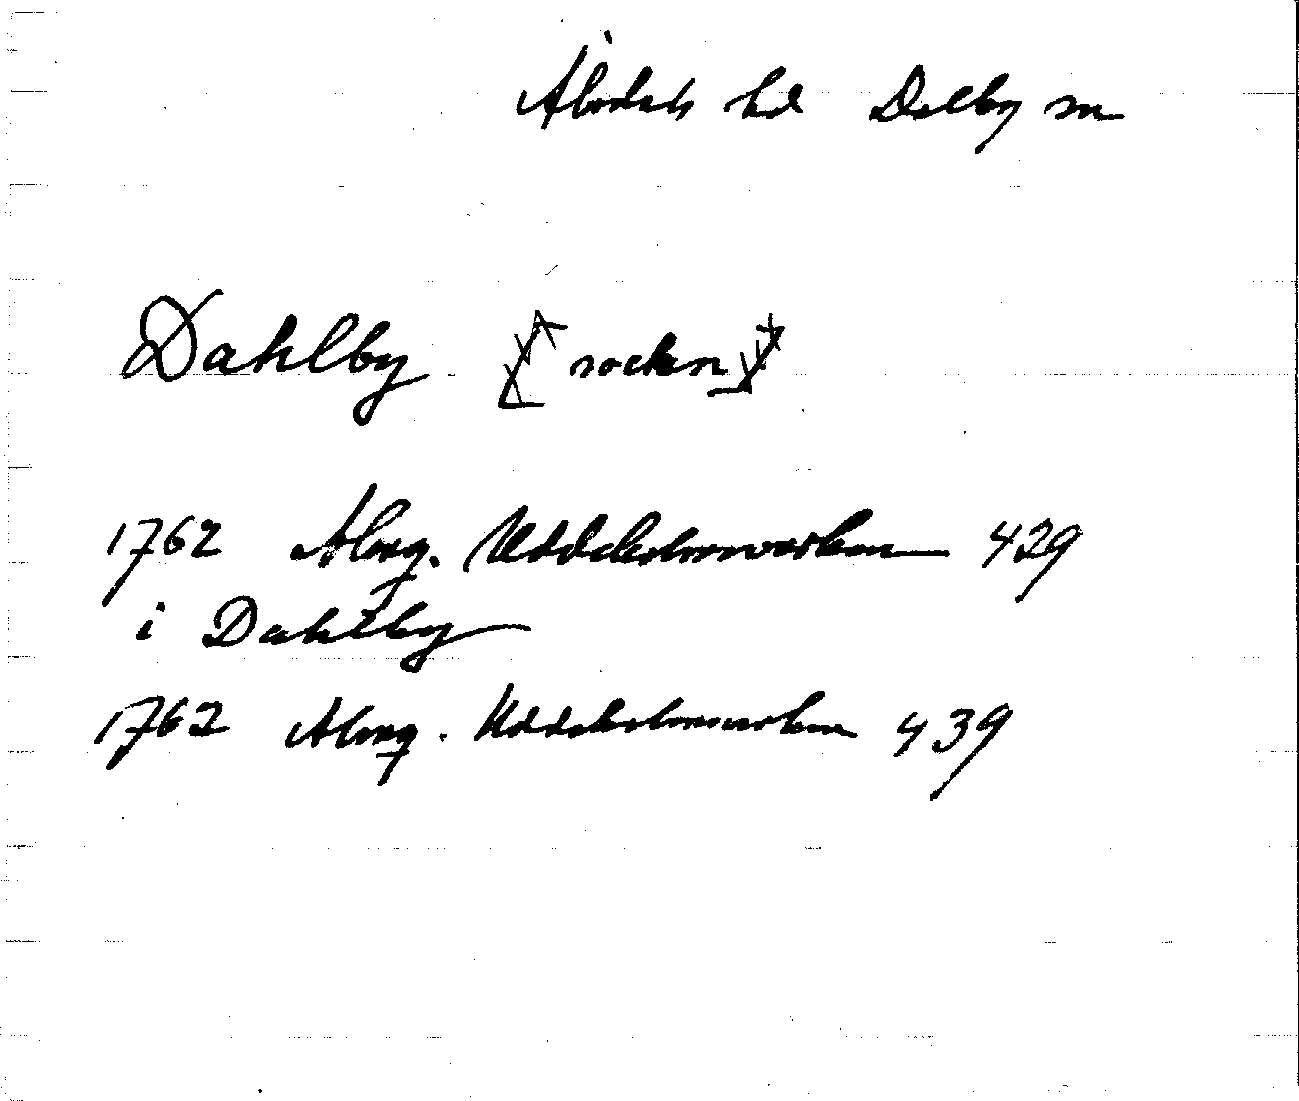 Älvdals hd Dalby sn
Dahlby [socken]
1762 Almq. Uddeholmsverken 429
i Dahlby
1762 Almq. Uddeholmsverken 439